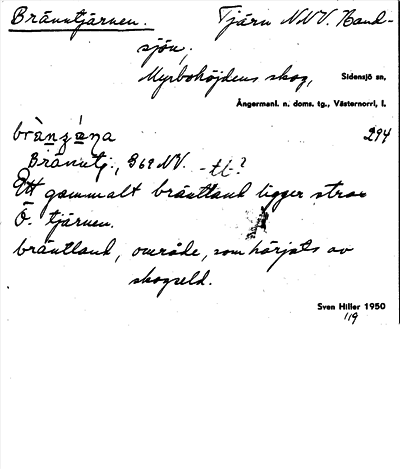 Bränntjärnen. Tjärn NNV. Hand-
sjön,
Myrbohöjdens skog, Sidensjö sn,
Ångermanl. n. doms. tg., Västernorrl. l.
294
Bränntj., G 62 NV. -tt-?
Ett gammalt bräntland ligger strax
Ö. tjärnen.
bräntland, område, som härjats av
skogseld.
Sven Hiller 1950
119